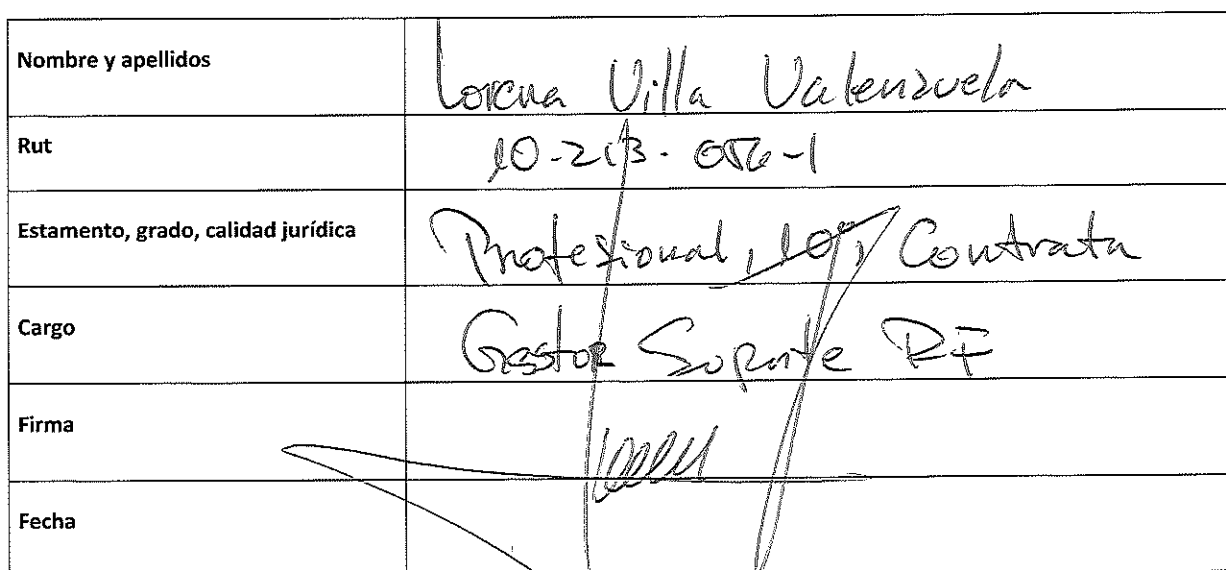 Nombre y apellidos Lorena Villa Valenzuela
Rut 10-213.056-1
Estamento, grado, calidad jurídica Profesional, 10°, Contrata
Cargo Gestor Soporte RF
Firma
Fecha